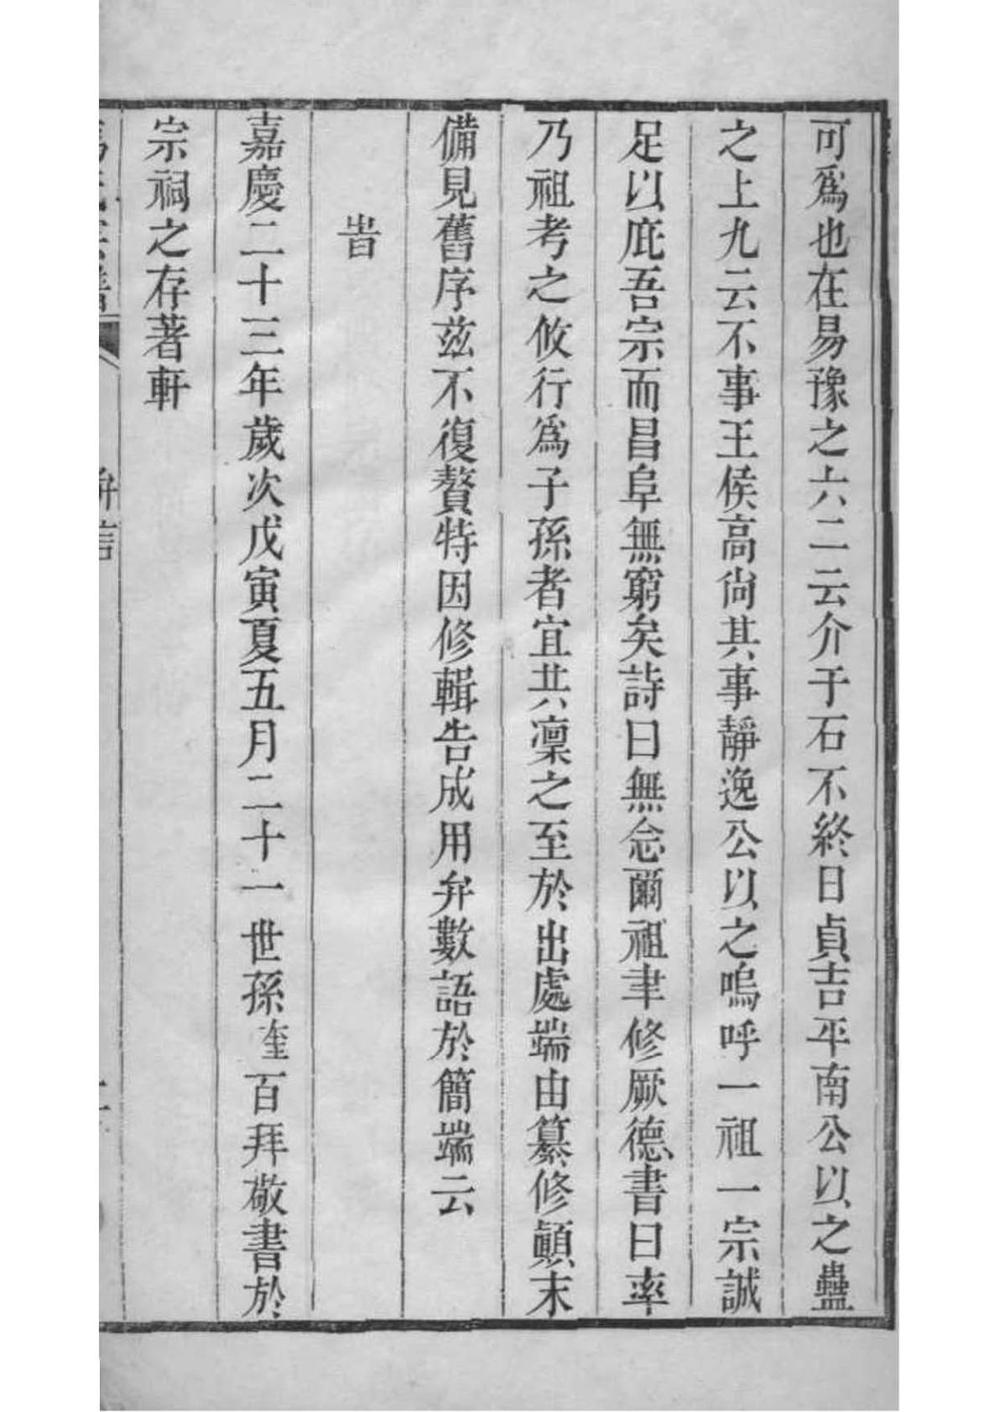 可爲也在易豫之六二云介于石不終日貞吉平南公以之蠱
之上九云不事王侯高尙其事靜逸公以之嗚呼一祖一宗誠
足以庇吾宗而昌阜無窮矣詩曰無念爾祖聿修厥德書曰率
乃祖考之攸行爲子孫者宜共凜之至於出處端由纂修顚末
備見舊序茲不復贅特因修輯告成用弁數語於簡端云
旹
嘉慶二十三年歲次戊寅夏五月二十一世孫奎百拜敬書於
宗祠之存著軒